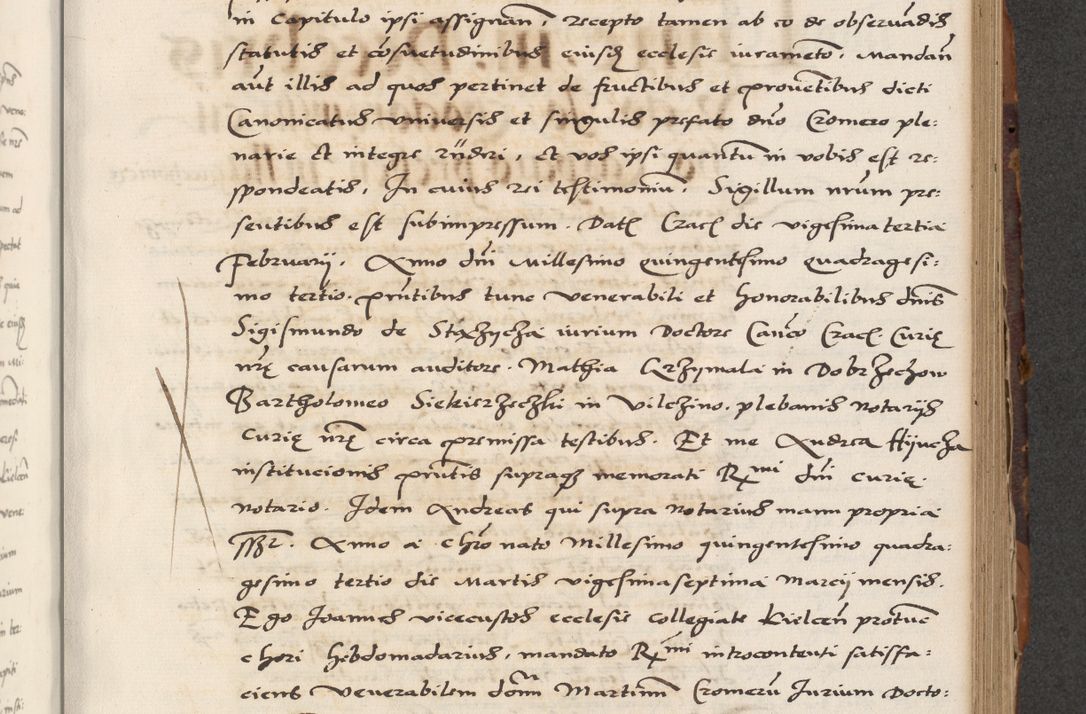 in Capitulo ipsi assignań, recepto tamen ab eo de observādis
statutis et cōsuetudinibus eiusdē ecclesie iuramēto, Mandań
aūt illis ad quos pertinet de fructibus et proveñtibus dicti
Canonicatus universis et singulis prefato dn̄o Cromero ple:
narie et integre r̄nderi, et vos ipsi quantū in vobis est re:
spondeatis, In cuius rei testimoniū, Sigillum nr̄um pre:
sentibus est subimpressum. Dat Crac die vigesima tertia
Februarij, Anno dn̄i Millesimo quingentesimo quadragesi:
mo tertio. prn̄tibus tunc venerabili et honorabilibus dn̄is
Sigismundo de Stężycza iurium Doctore Can̄co Crac Curię
nr̄ę causarum auditore. Mathia Krzymala in Dobrzechow
Bartholomeo Siekierzeczki in Vilczino. plebanis Notarijs
curię nr̄ę circa premissa testibus. Et me Andrea Hijncza
institucionis prn̄tis supraq memorati Rmi dn̄i curię.
notario. Idem Andreas qui supra notarius manu propria
sszt. Anno a chr̄o nato Millesimo quingentesimo quadra:
gesimo tertio die Martis vigesima septima Marcij mensis.
Ego Joannes vicecustos ecclesie collegiate Kielceń protunc
chori hebdomadarius, mandato Rmi introcontenti satisfa:
ciens Venerabilem dom̄ Martinū Cromerū Iurium Docto: